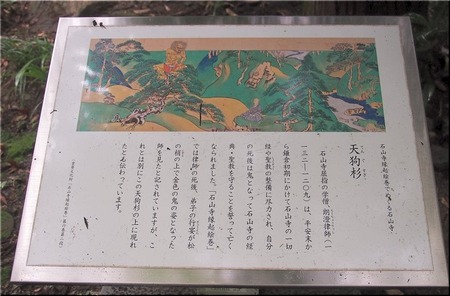 石山寺縁起絵巻で見る石山寺
天狗杉
石山寺屈指の学僧、朗澄律師（一
一三二―一二〇九）は、平安末か
ら鎌倉初期にかけて石山寺の一切
経や聖教の整備に尽力され、自分
の死後は鬼となって石山寺の経
典・聖教を守ることを誓って亡く
なられました。「石山寺縁起絵巻」
では律師の死後、弟子の行宴が松
の梢の上で金色の鬼の姿となった
師を見たと記されていますが、こ
れとは別にこの天狗杉の上に現れ
たとあ伝わっています。